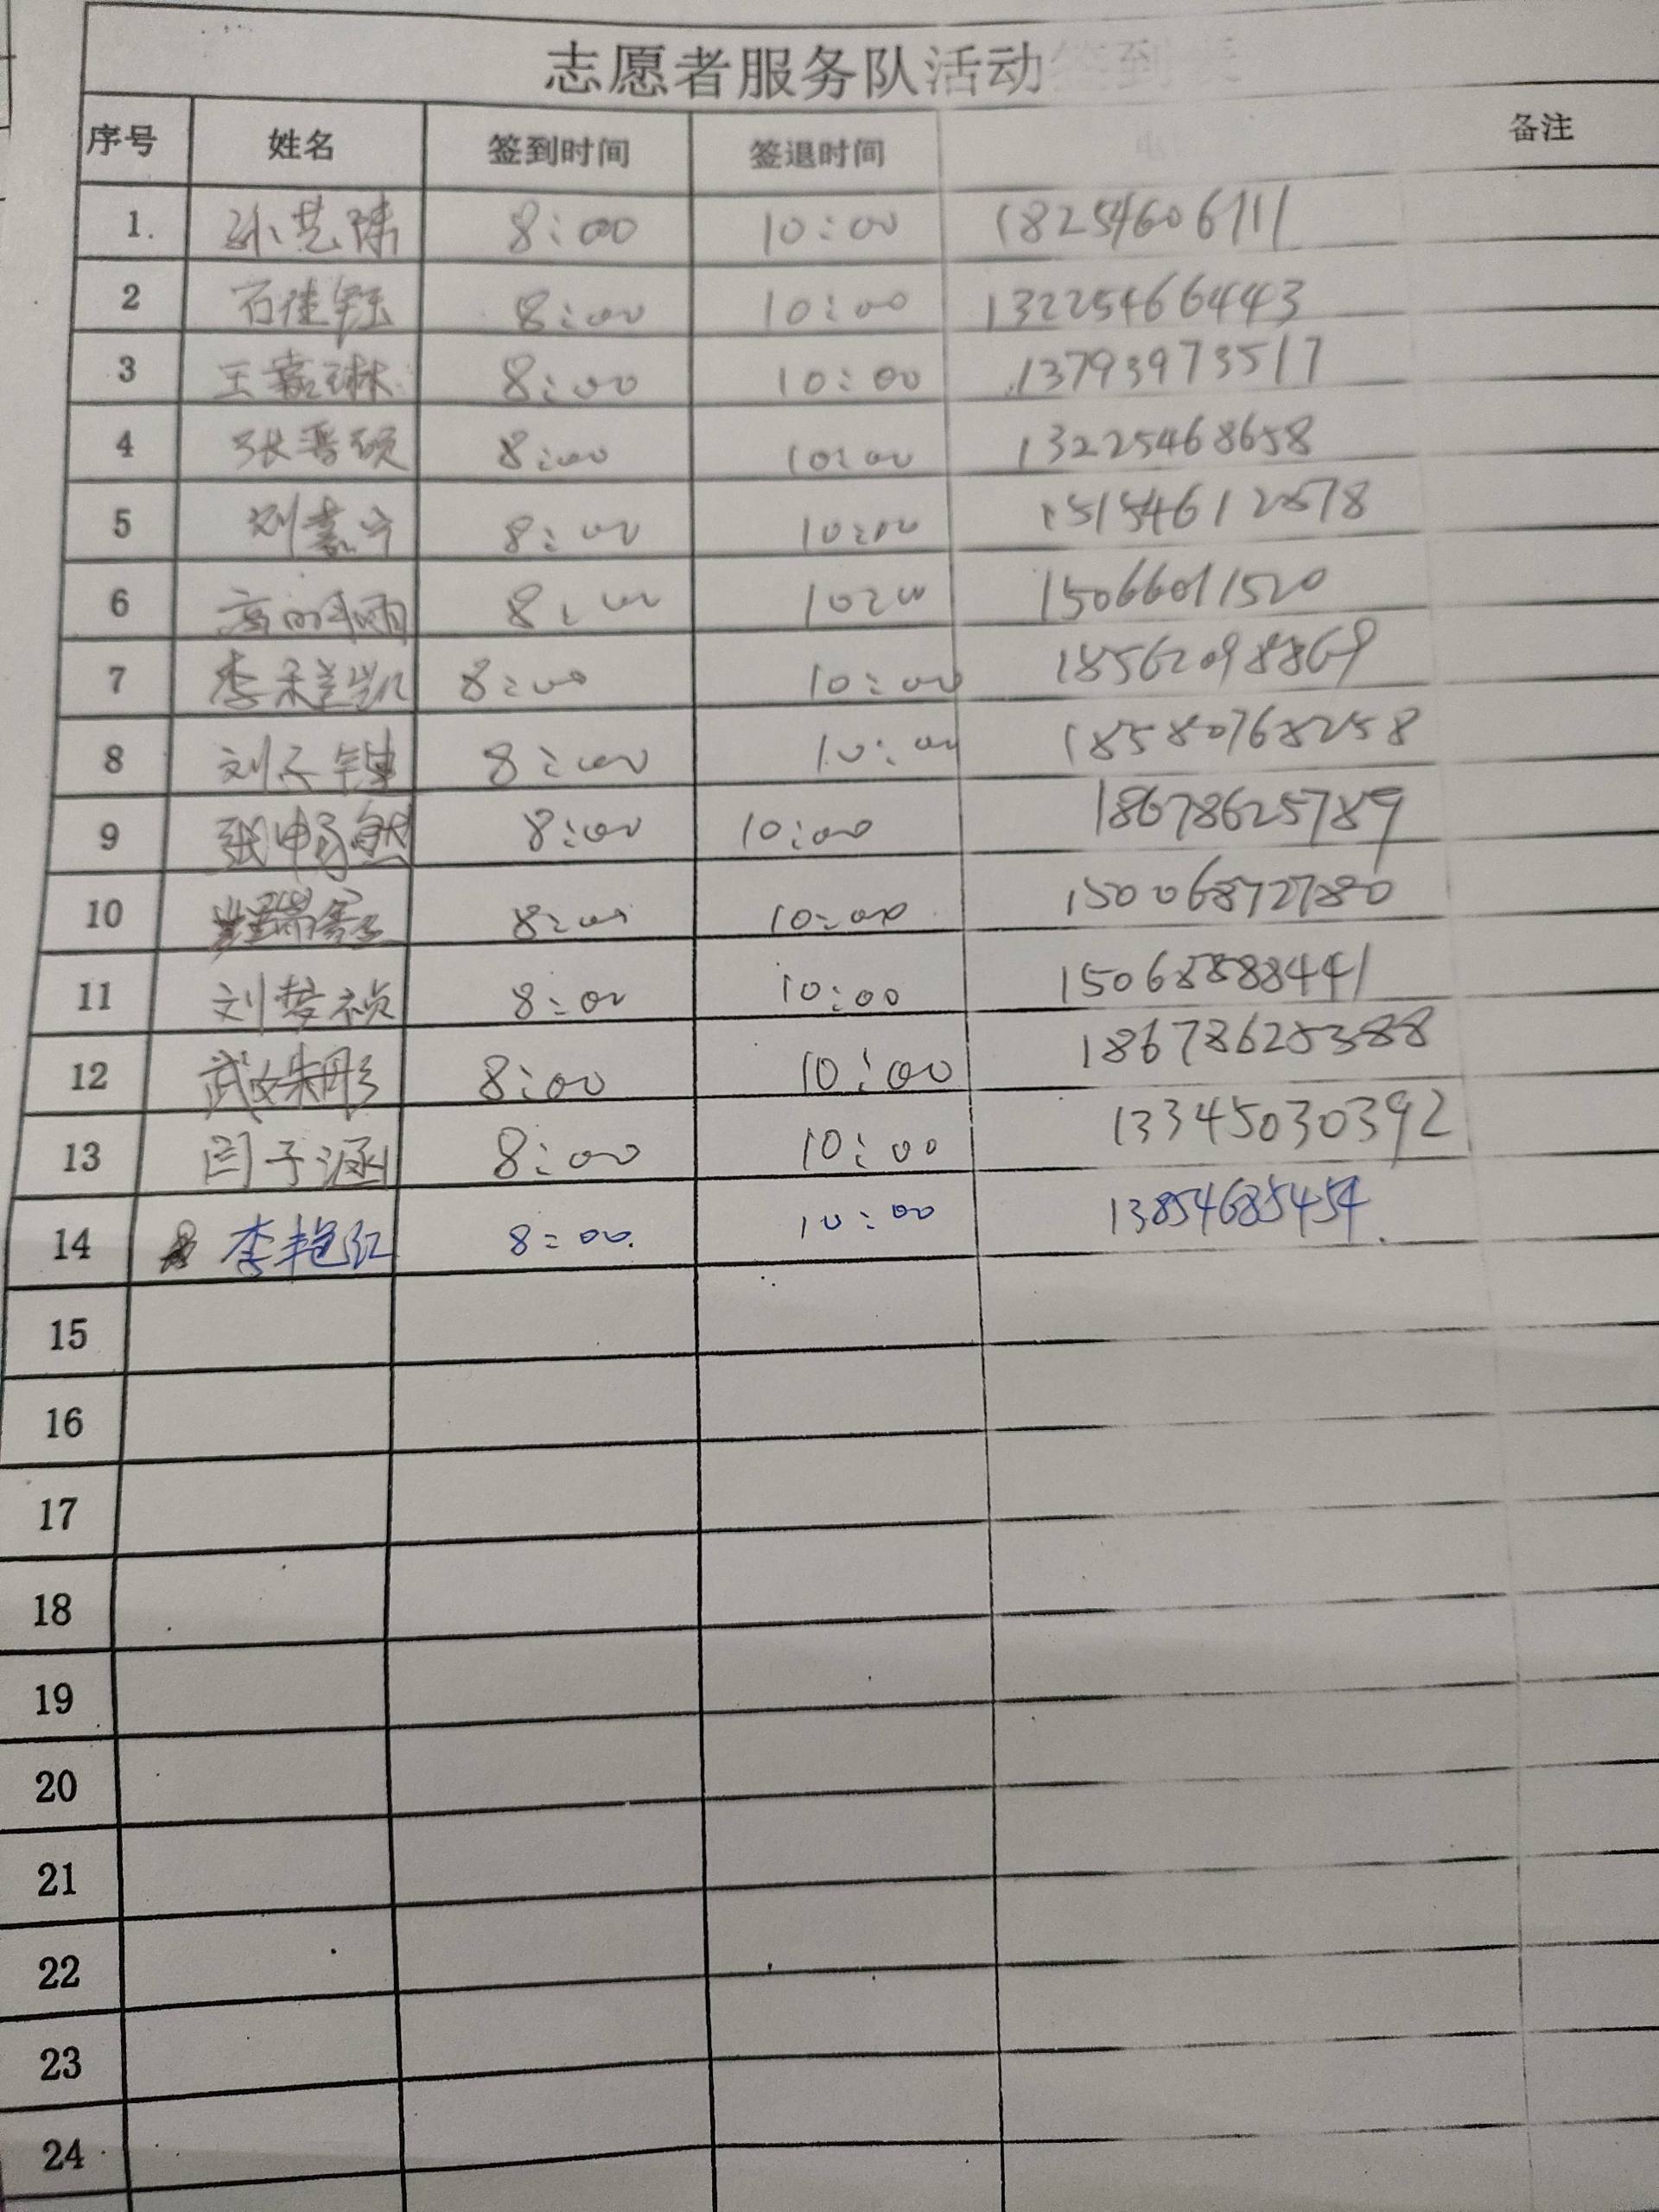 志愿者服务队活动签到表
序号 姓名 签到时间 签退时间 备注
1. 孙艺 8:00 10:00 18254606711
2 石佳钰 8:00 10:00 13225466443
3 王嘉琳 8:00 10:00 13793973517
4 张晋硕 8:00 10:00 13225468658
5 刘嘉宁 8:00 10:00 15154612578
6 高雨 8:00 10:00 15066011520
7 李承兰凯 8:00 10:00 18562098869
8 刘子锦 8:00 10:00 18580768258
9 张申易然 8:00 10:00 18678625789
10 瑞 8:00 10:00 15006872780
11 刘梦祯 8:00 10:00 15068888441
12 武姝彤 8:00 10:00 18678628388
13 闫子涵 8:00 10:00 13345030392
14 李艳红 8:00 10:00 13854685454
15
16
17
18
19
20
21
22
23
24